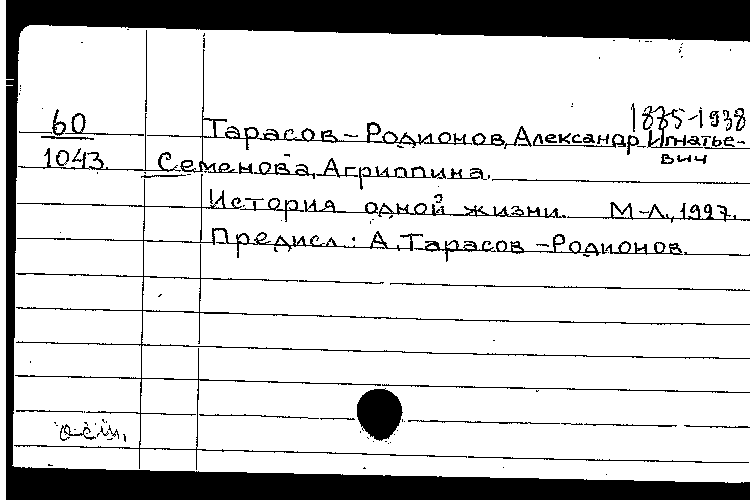 1885-1938
60 Тарасов-Родионов, Александр Игнатье-
вич
1043. Семенова, Агриппина.
История одной жизни. М-Л., 1927.
Предисл: А. Тарасов-Родионов.